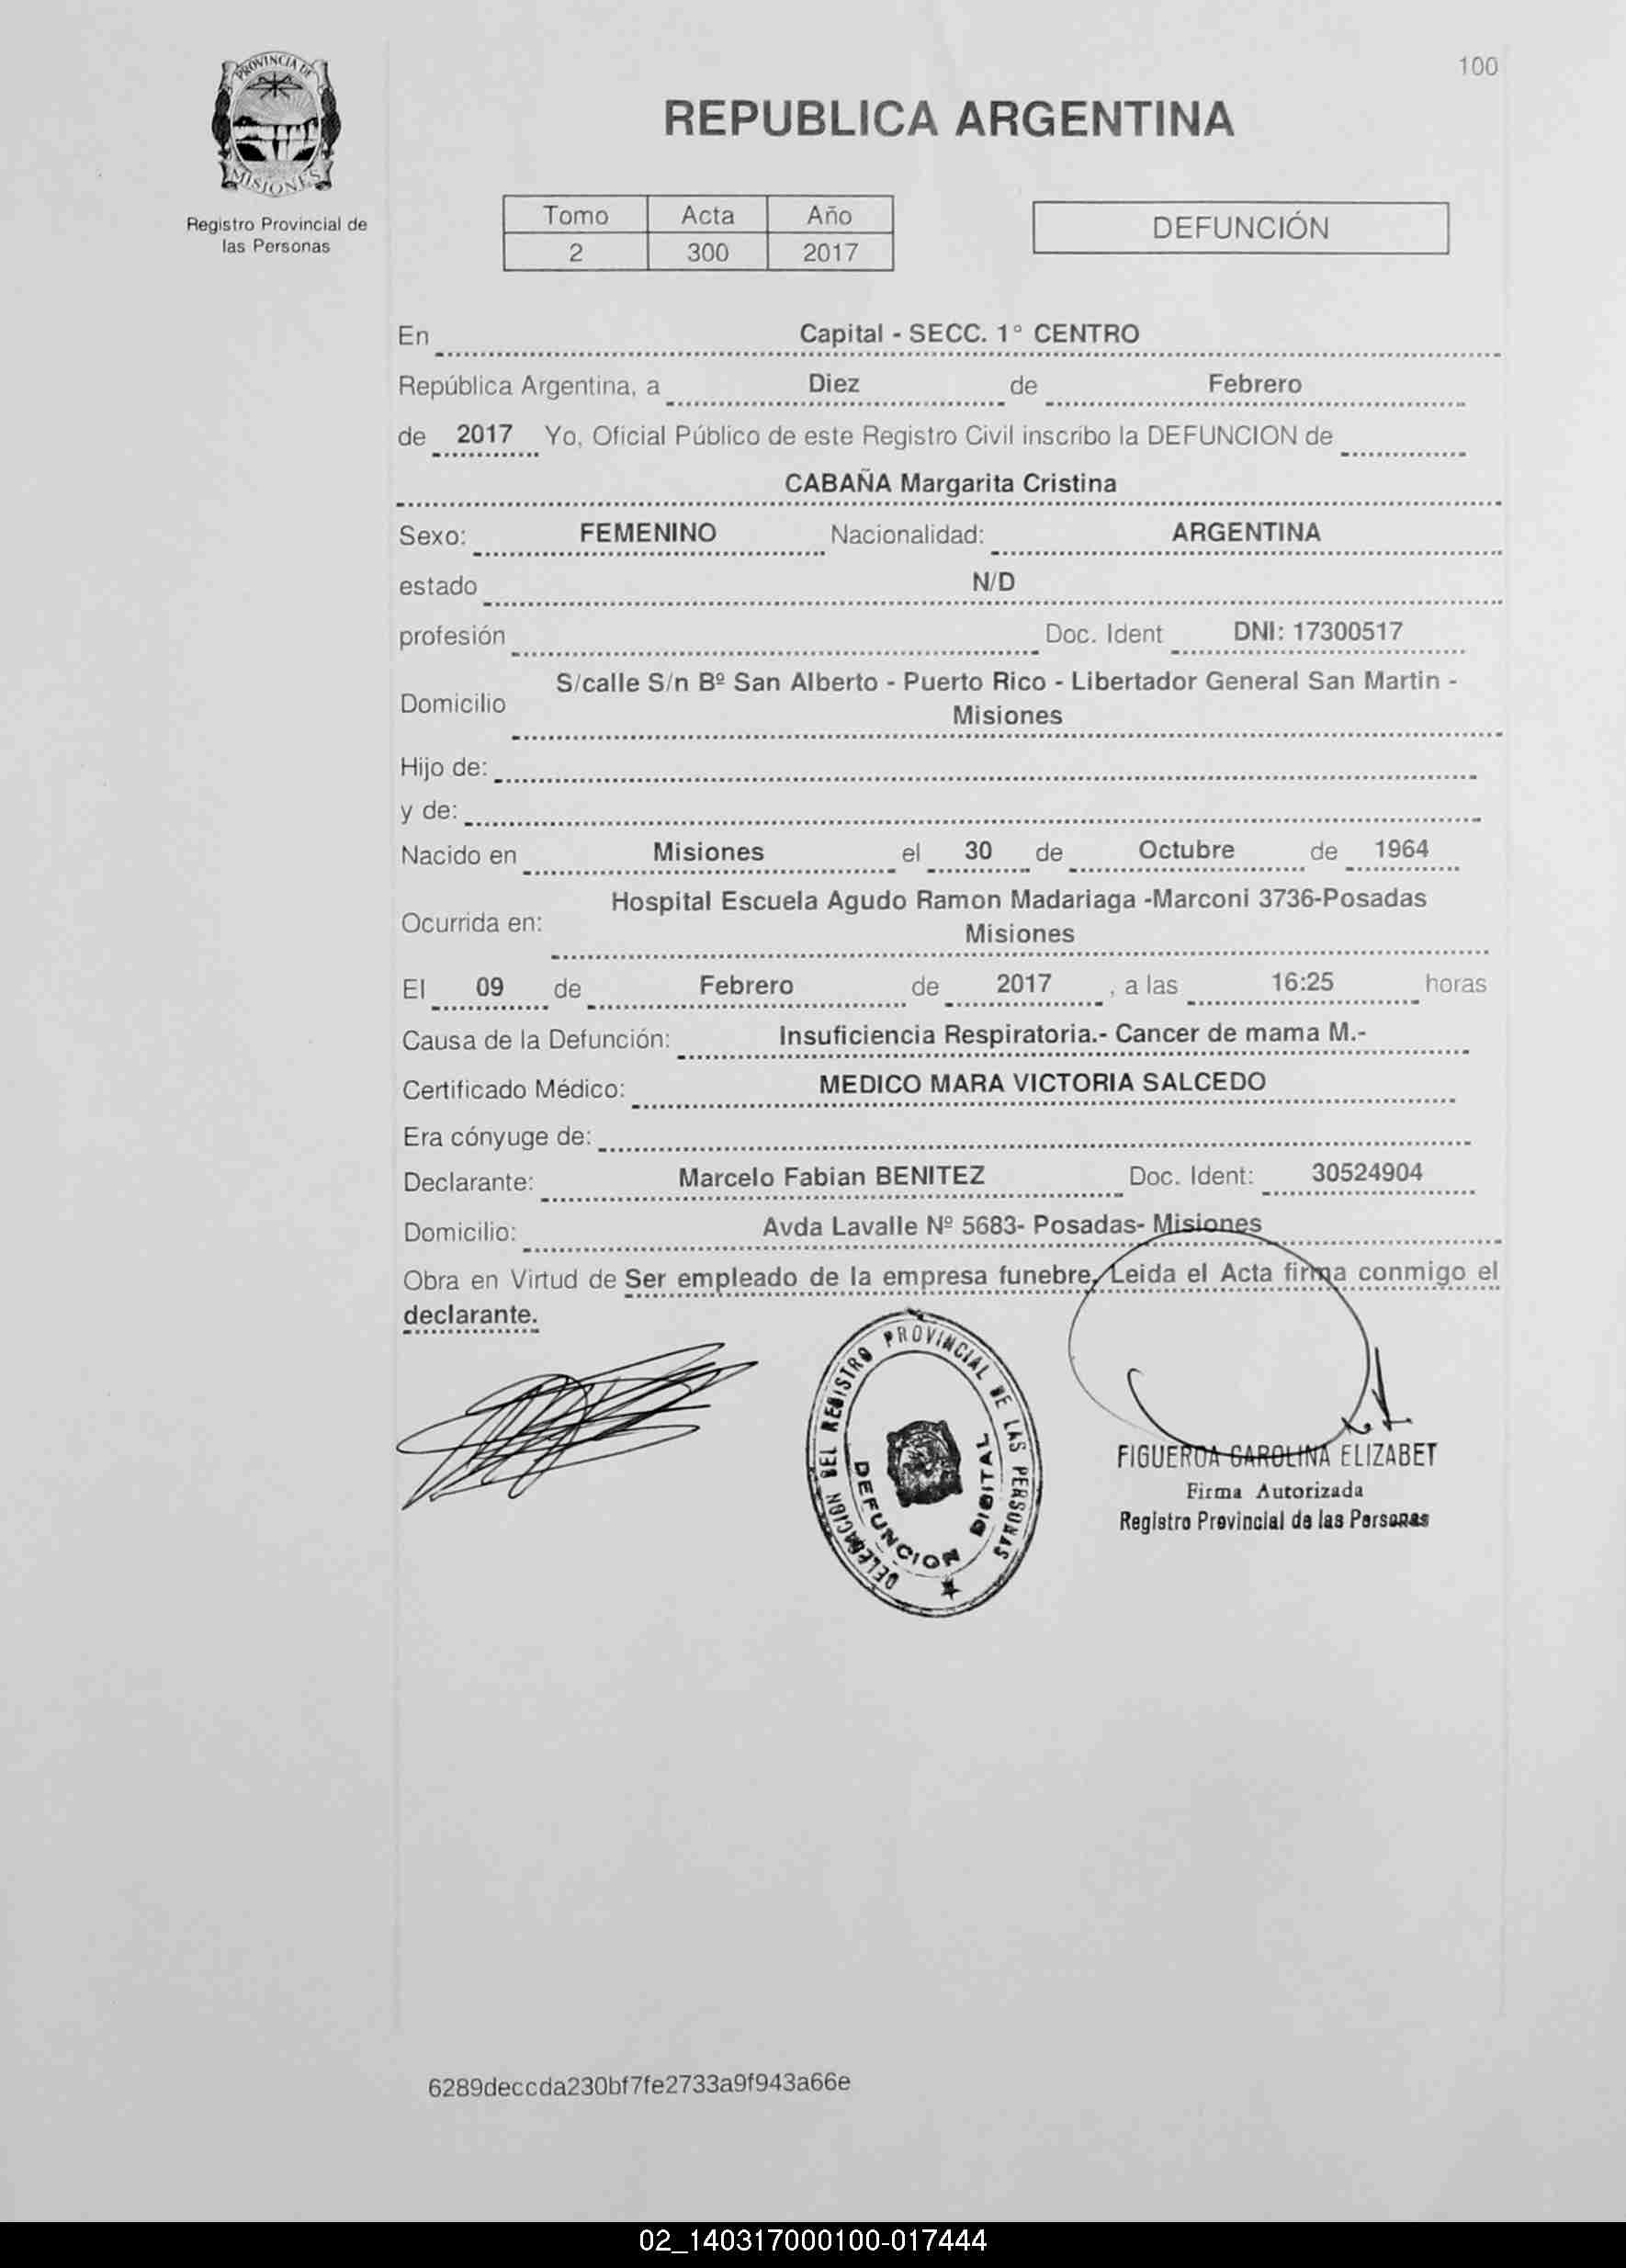 PROVINCIA DE
MISIONES
Registro Provincial de
las Personas
100
REPUBLICA ARGENTINA
Tomo Acta Año
2 300 2017
DEFUNCIÓN
En Capital - SECC. 1° CENTRO
República Argentina, a Diez de Febrero
de 2017 Yo, Oficial Público de este Registro Civil inscribo la DEFUNCION de
CABAÑA Margarita Cristina
Sexo: FEMENINO Nacionalidad: ARGENTINA
estado N/D
profesión Doc. Ident DNI: 17300517
S/calle S/n Bº San Alberto - Puerto Rico - Libertador General San Martin -
Domicilio
Misiones
Hijo de:
y de:
Nacido en Misiones el 30 de Octubre de 1964
Hospital Escuela Agudo Ramon Madariaga -Marconi 3736-Posadas
Ocurrida en:
Misiones
El 09 de Febrero de 2017 , a las 16:25 horas
Causa de la Defunción: Insuficiencia Respiratoria.- Cancer de mama M.-
Certificado Médico: MEDICO MARA VICTORIA SALCEDO
Era cónyuge de:
Declarante: Marcelo Fabian BENITEZ Doc. Ident: 30524904
Domicilio: Avda Lavalle Nº 5683- Posadas- Misiones
Obra en Virtud de Ser empleado de la empresa funebre, Leida el Acta firma conmigo el
declarante.
DELEGACION DEL REGISTRO PROVINCIAL DE LAS PERSONAS
DEFUNCION DIGITAL
FIGUEROA CAROLINA ELIZABET
Firma Autorizada
Registro Provincial de las Personas
6289deccda230bf7fe2733a9f943a66e
02_140317000100-017444